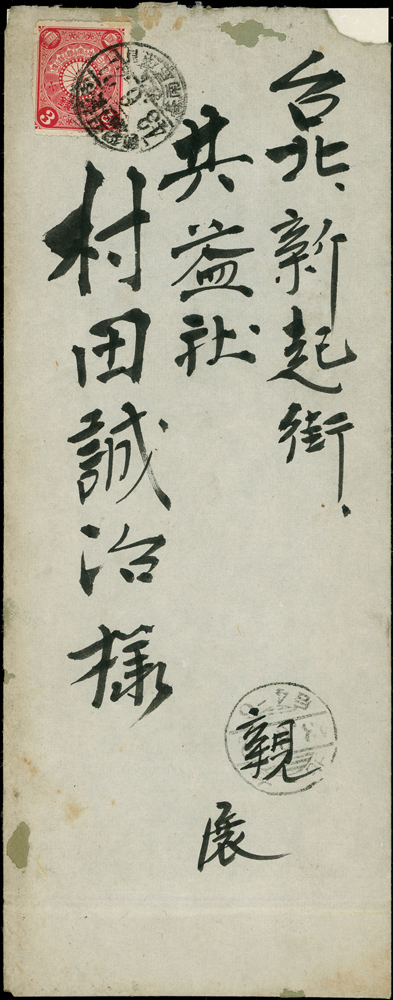 台北、新起街、
共益社
村田誠治様
親展
3
43